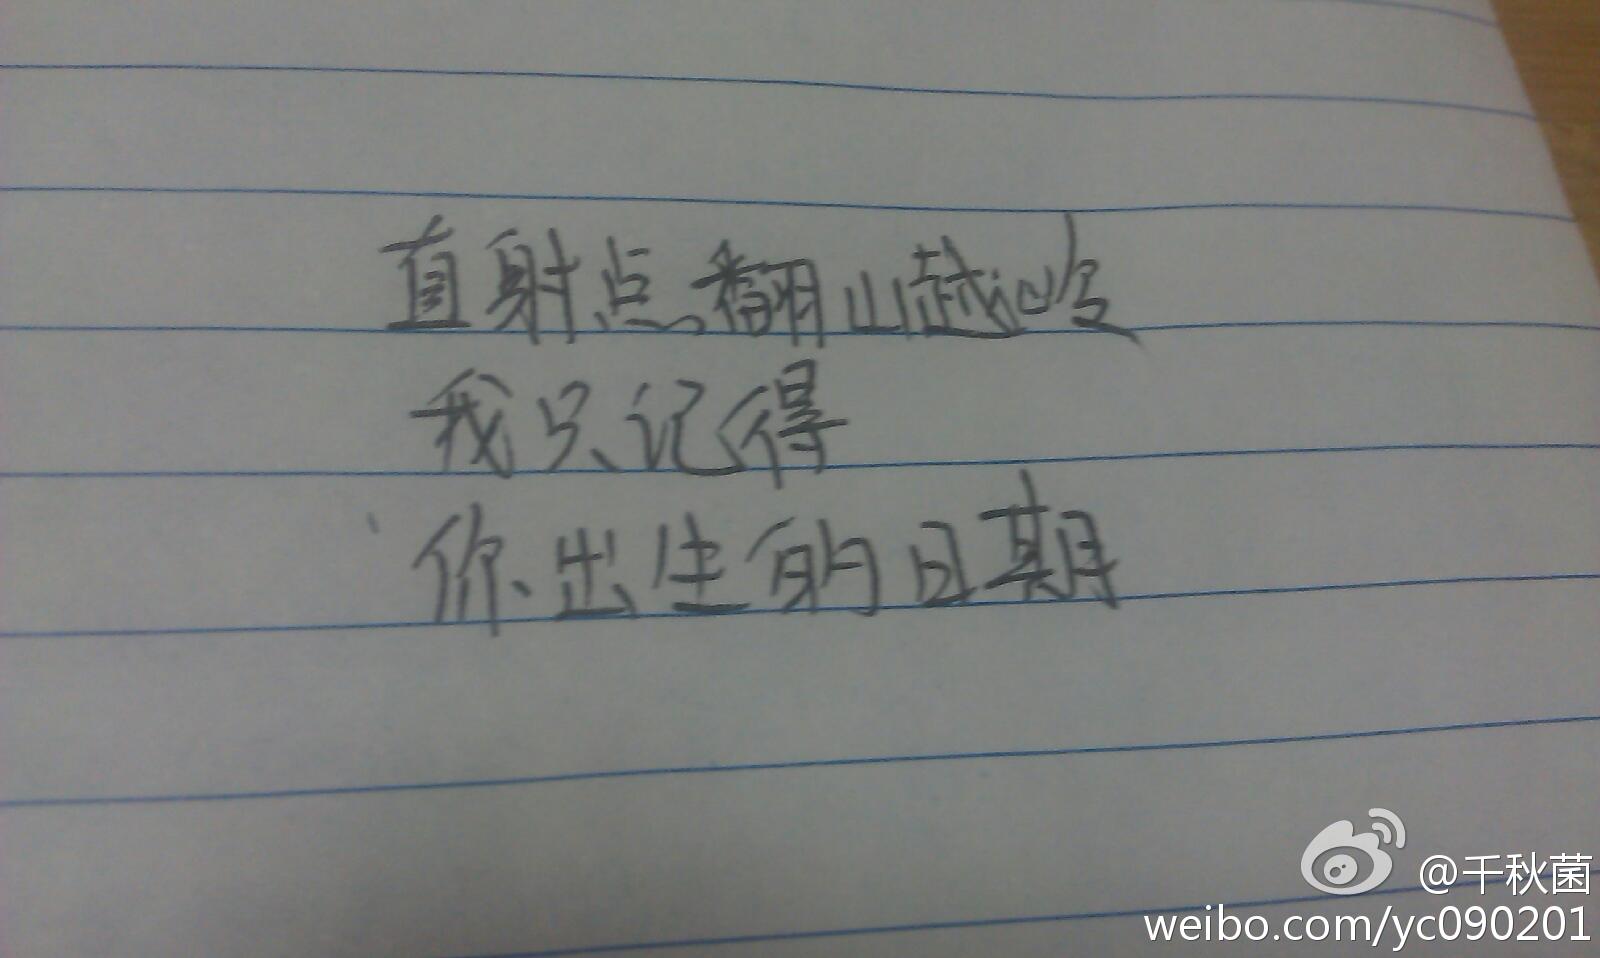 直射点翻山越岭
我只记得
你出生的日期
@千秋菌
weibo.com/yc090201